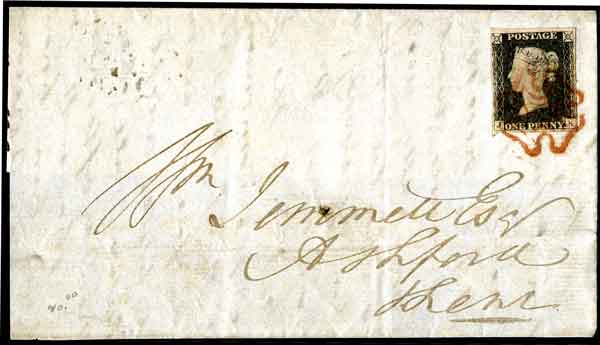 POSTAGE
ONE PENNY
Wm Jemmett Esqr
Ashford
Kent